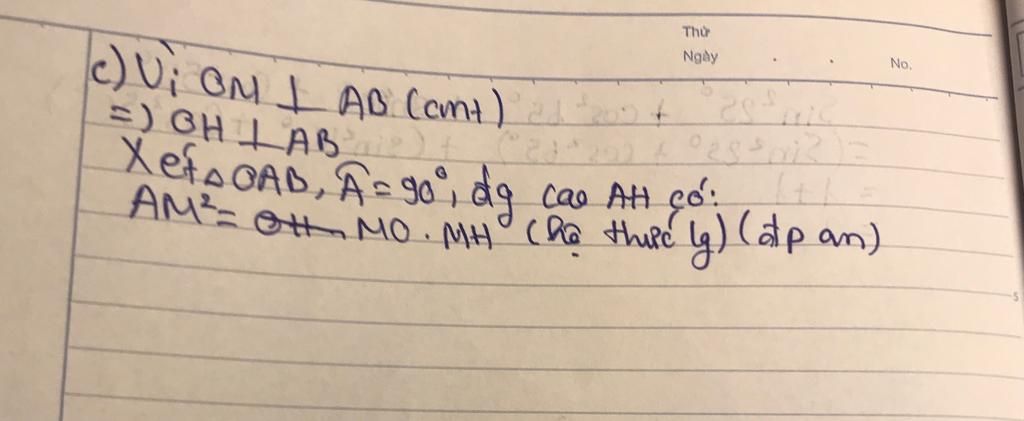 Thứ
Ngày . . No.
c) Vì OM ⊥ AB (cmt)
=) OH ⊥ AB
Xét △ OAB, Â = 90°, đg cao AH có:
AM² = MO . MH (hệ thức lg) (đp an)
5